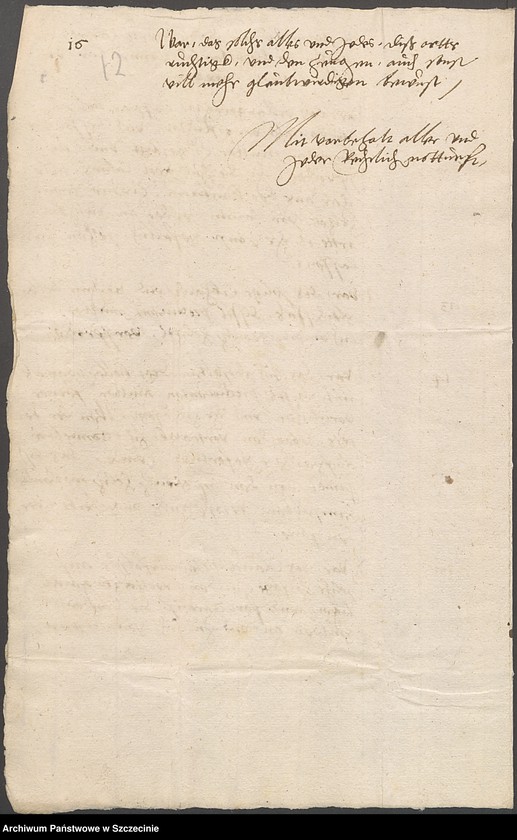 16
12
War, das solchs alles und Jedes, dieß ortts
ruchtigk, und den Zeugen, auch sonst
vill mehr glaubwirdigen bewust /
Mit vorbehalt aller und
Jeder Rechtlich notturfft,
Archiwum Państwowe w Szczecinie